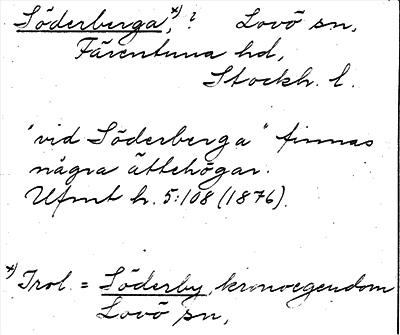 Söderberga,ˣ⁾ ? Lovö sn,
Färentuna hd,
Stockh. l.
"vid Söderberga" finnas
några ättehögar.
Ufmt h. 5:108 (1876).
ˣ⁾ Trol. = Söderby, kronoegendom
Lovö sn,